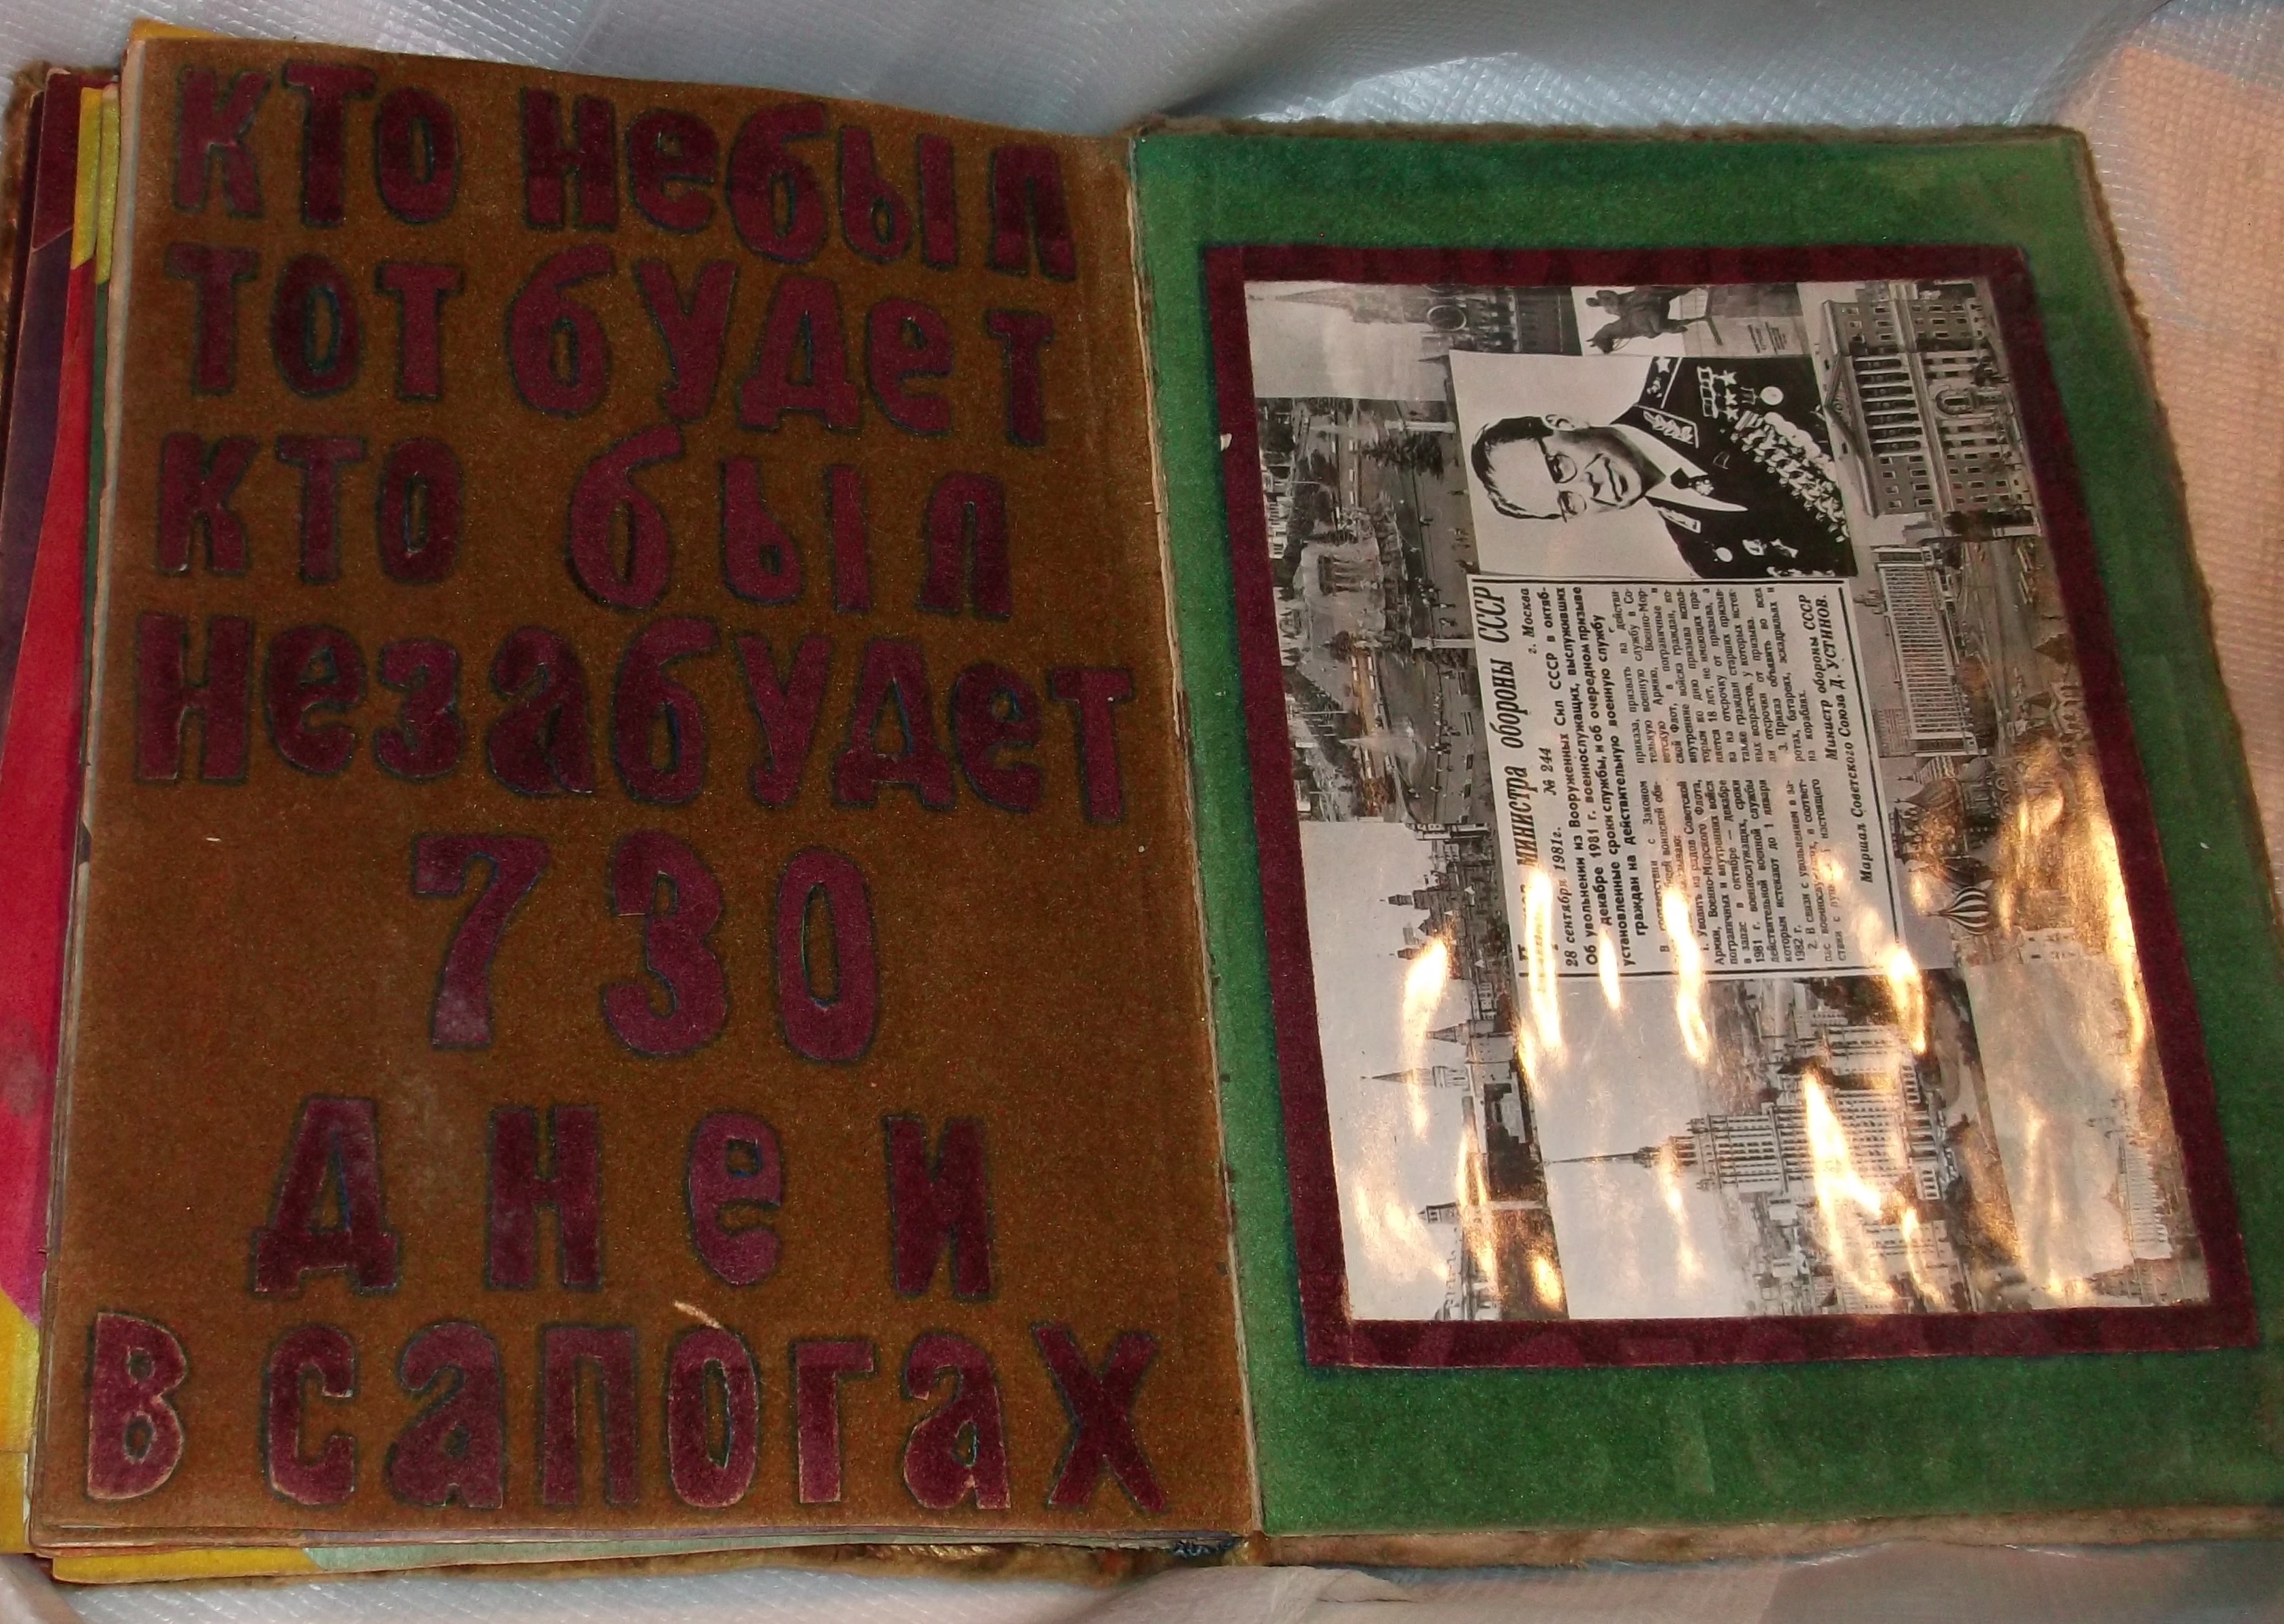 кто небыл
тот будет
кто был
незабудет
730
днеи
в сапогах
министра обороны СССР
28 сентября 1981г. № 244 г. Москва
Об увольнении из Вооруженных Сил СССР в октяб-
декабре 1981 г. военнослужащих, выслуживших
установленные сроки службы, и об очередном призыве
граждан на действительную военную службу
В соответствии с Законом
воинской обя-
1. Уволить из рядов Советской
Армии, Военно-Морского Флота,
пограничных и внутренних войск
в запас в октябре — декабре
1981 г. военнослужащих, сроки
действительной военной службы
которым истекают до 1 января
1982 г.
2. В связи с увольнением в за-
пас в соответ-
ствии с настоящего
приказа, призвать на действи-
тельную военную службу в Со-
ветскую Армию, Военно-Мор-
ской Флот, в пограничные и
внутренние войска граждан, ко-
торым ко дню призыва испол-
няется 18 лет, не имеющих пра-
ва на отсрочку от призыва, а
также граждан старших призыв-
ных возрастов, у которых истек-
ли отсрочки от призыва.
3. Приказ объявить во всех
ротах, батареях, эскадрильях и
на кораблях.
Министр обороны СССР
Маршал Советского Союза Д. УСТИНОВ.